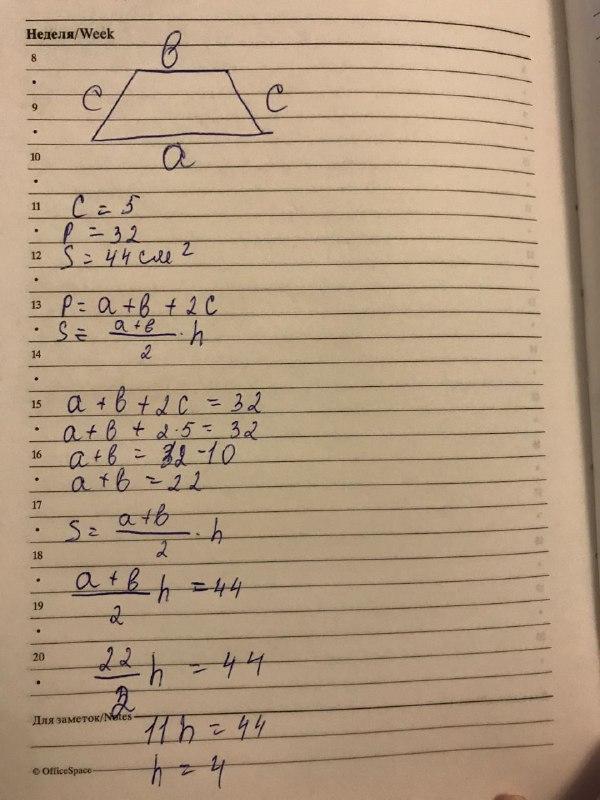 Неделя/Week
8
в
9
c
c
10
a
11
c = 5
P = 32
12
S = 44 см²
13
P = a + в + 2c
S = (a+в)/2 · h
14
15
a + в + 2c = 32
a + в + 2·5 = 32
16
a + в = 32 - 10
a + в = 22
17
S = (a+в)/2 · h
18
(a + в)/2 h = 44
19
20
22/2 h = 44
Для заметок/Notes
11h = 44
h = 4
© OfficeSpace